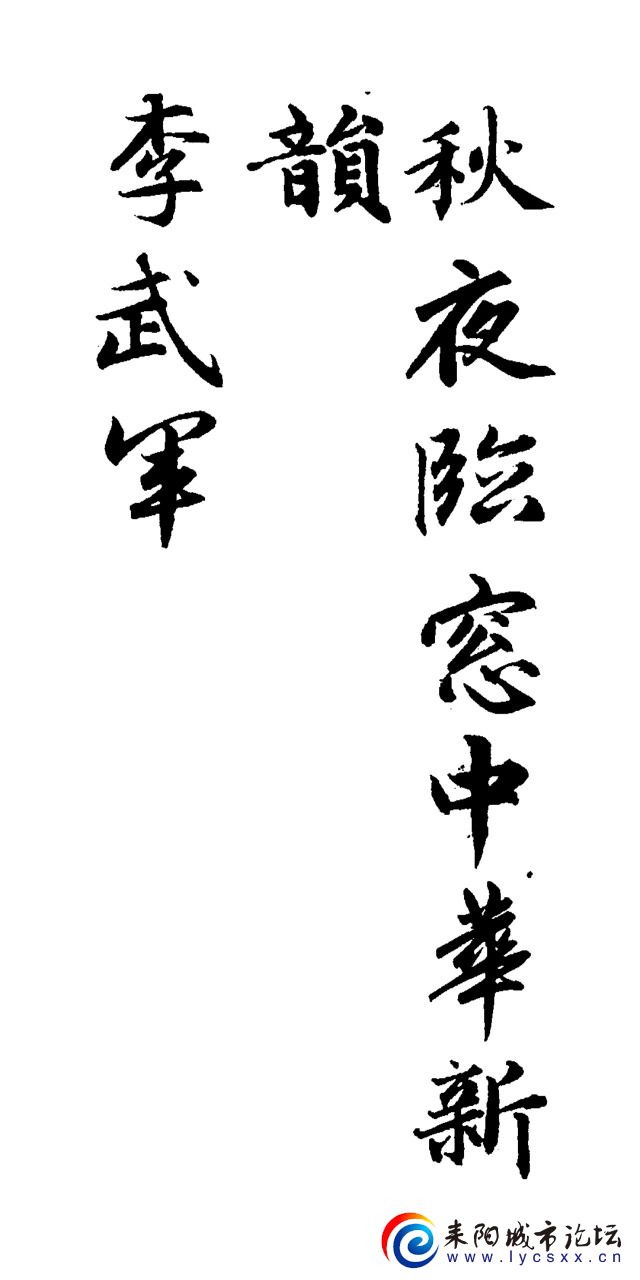 秋夜臨窓中華新
韻
李武军
耒阳城市论坛
www.lycsxx.cn